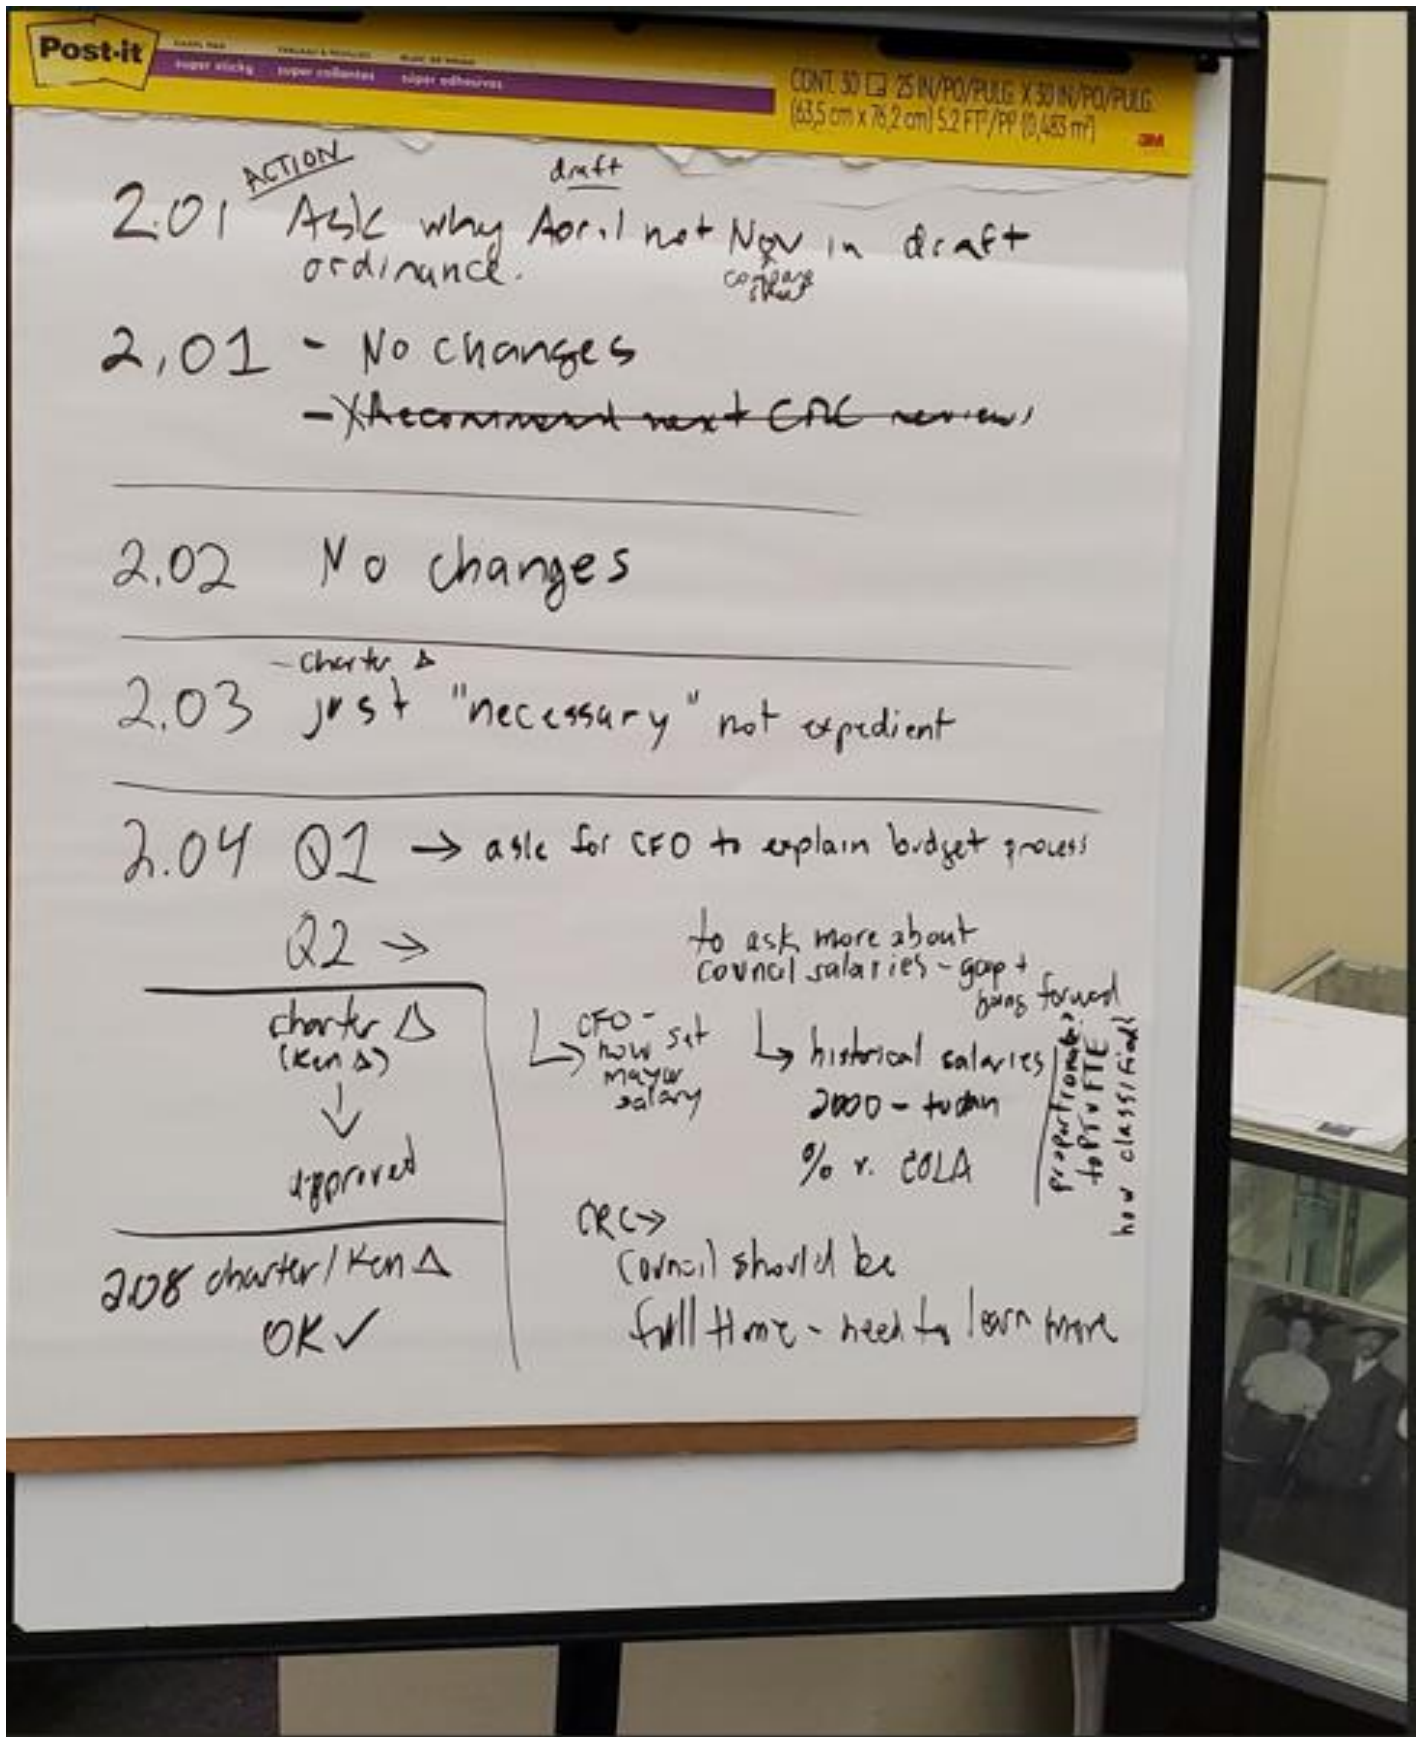 Post-it
super sticky super collantes súper adhesivas
CONT. 30 25 IN/PO/PULG. X 30 IN/PO/PULG.
(63,5 cm x 76,2 cm) 5.2 FT²/PI² (0,483 m²)
3M
ACTION
draft
2.01 Ask why April not Nov in draft
ordinance.
compare
2.01 - No changes
- Recommend next CRC review
2.02 No changes
- Charter Δ
2.03 just "necessary" not expedient
2.04 Q1 → ask for CFO to explain budget process
Q2 →
to ask more about
council salaries - gap +
going forward
charter Δ
(Ken Δ)
↓
approved
CFO -
how set
mayor
salary
historical salaries
2000 - today
% v. COLA
proportionate?
to PT v FTE
how classified?
2.08 charter/Ken Δ
OK ✓
CRC→
Council should be
full time - need to learn more